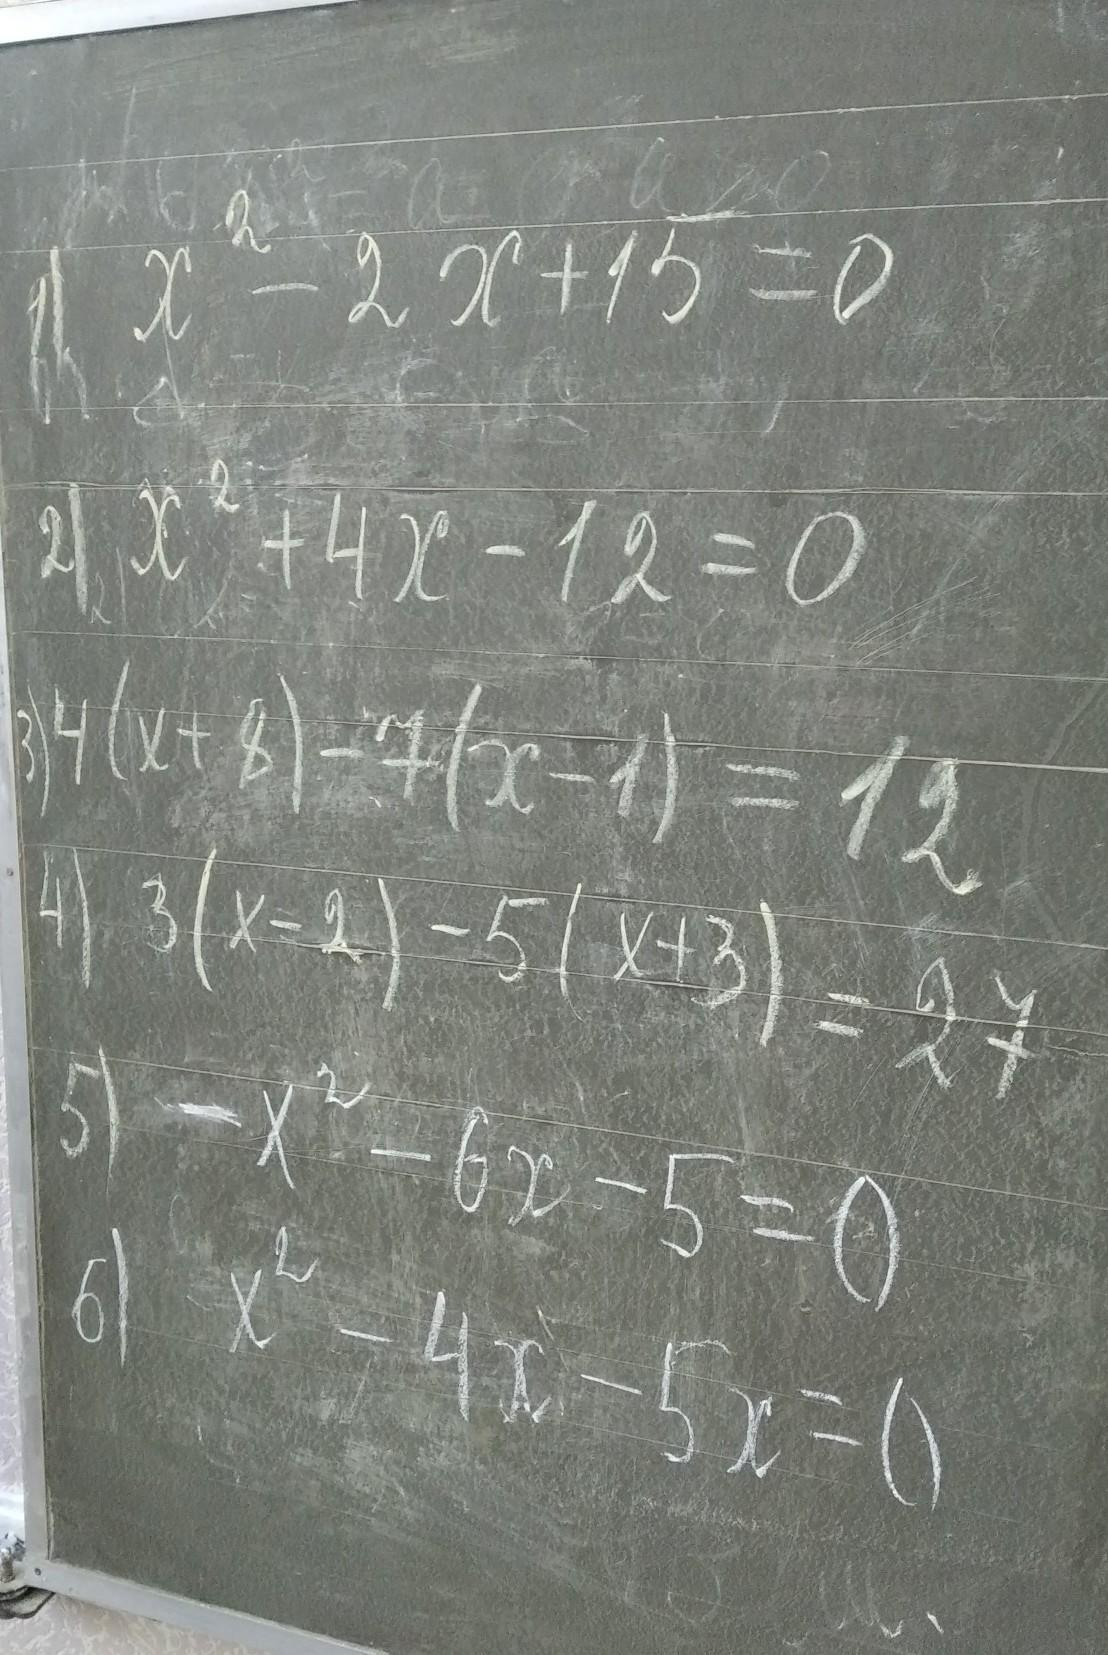 1) x² - 2x + 15 = 0
2) x² + 4x - 12 = 0
3) 4(x + 8) - 7(x - 1) = 12
4) 3(x - 2) - 5(x + 3) = 27
5) - x² - 6x - 5 = 0
6) x² - 4x - 5x = 0